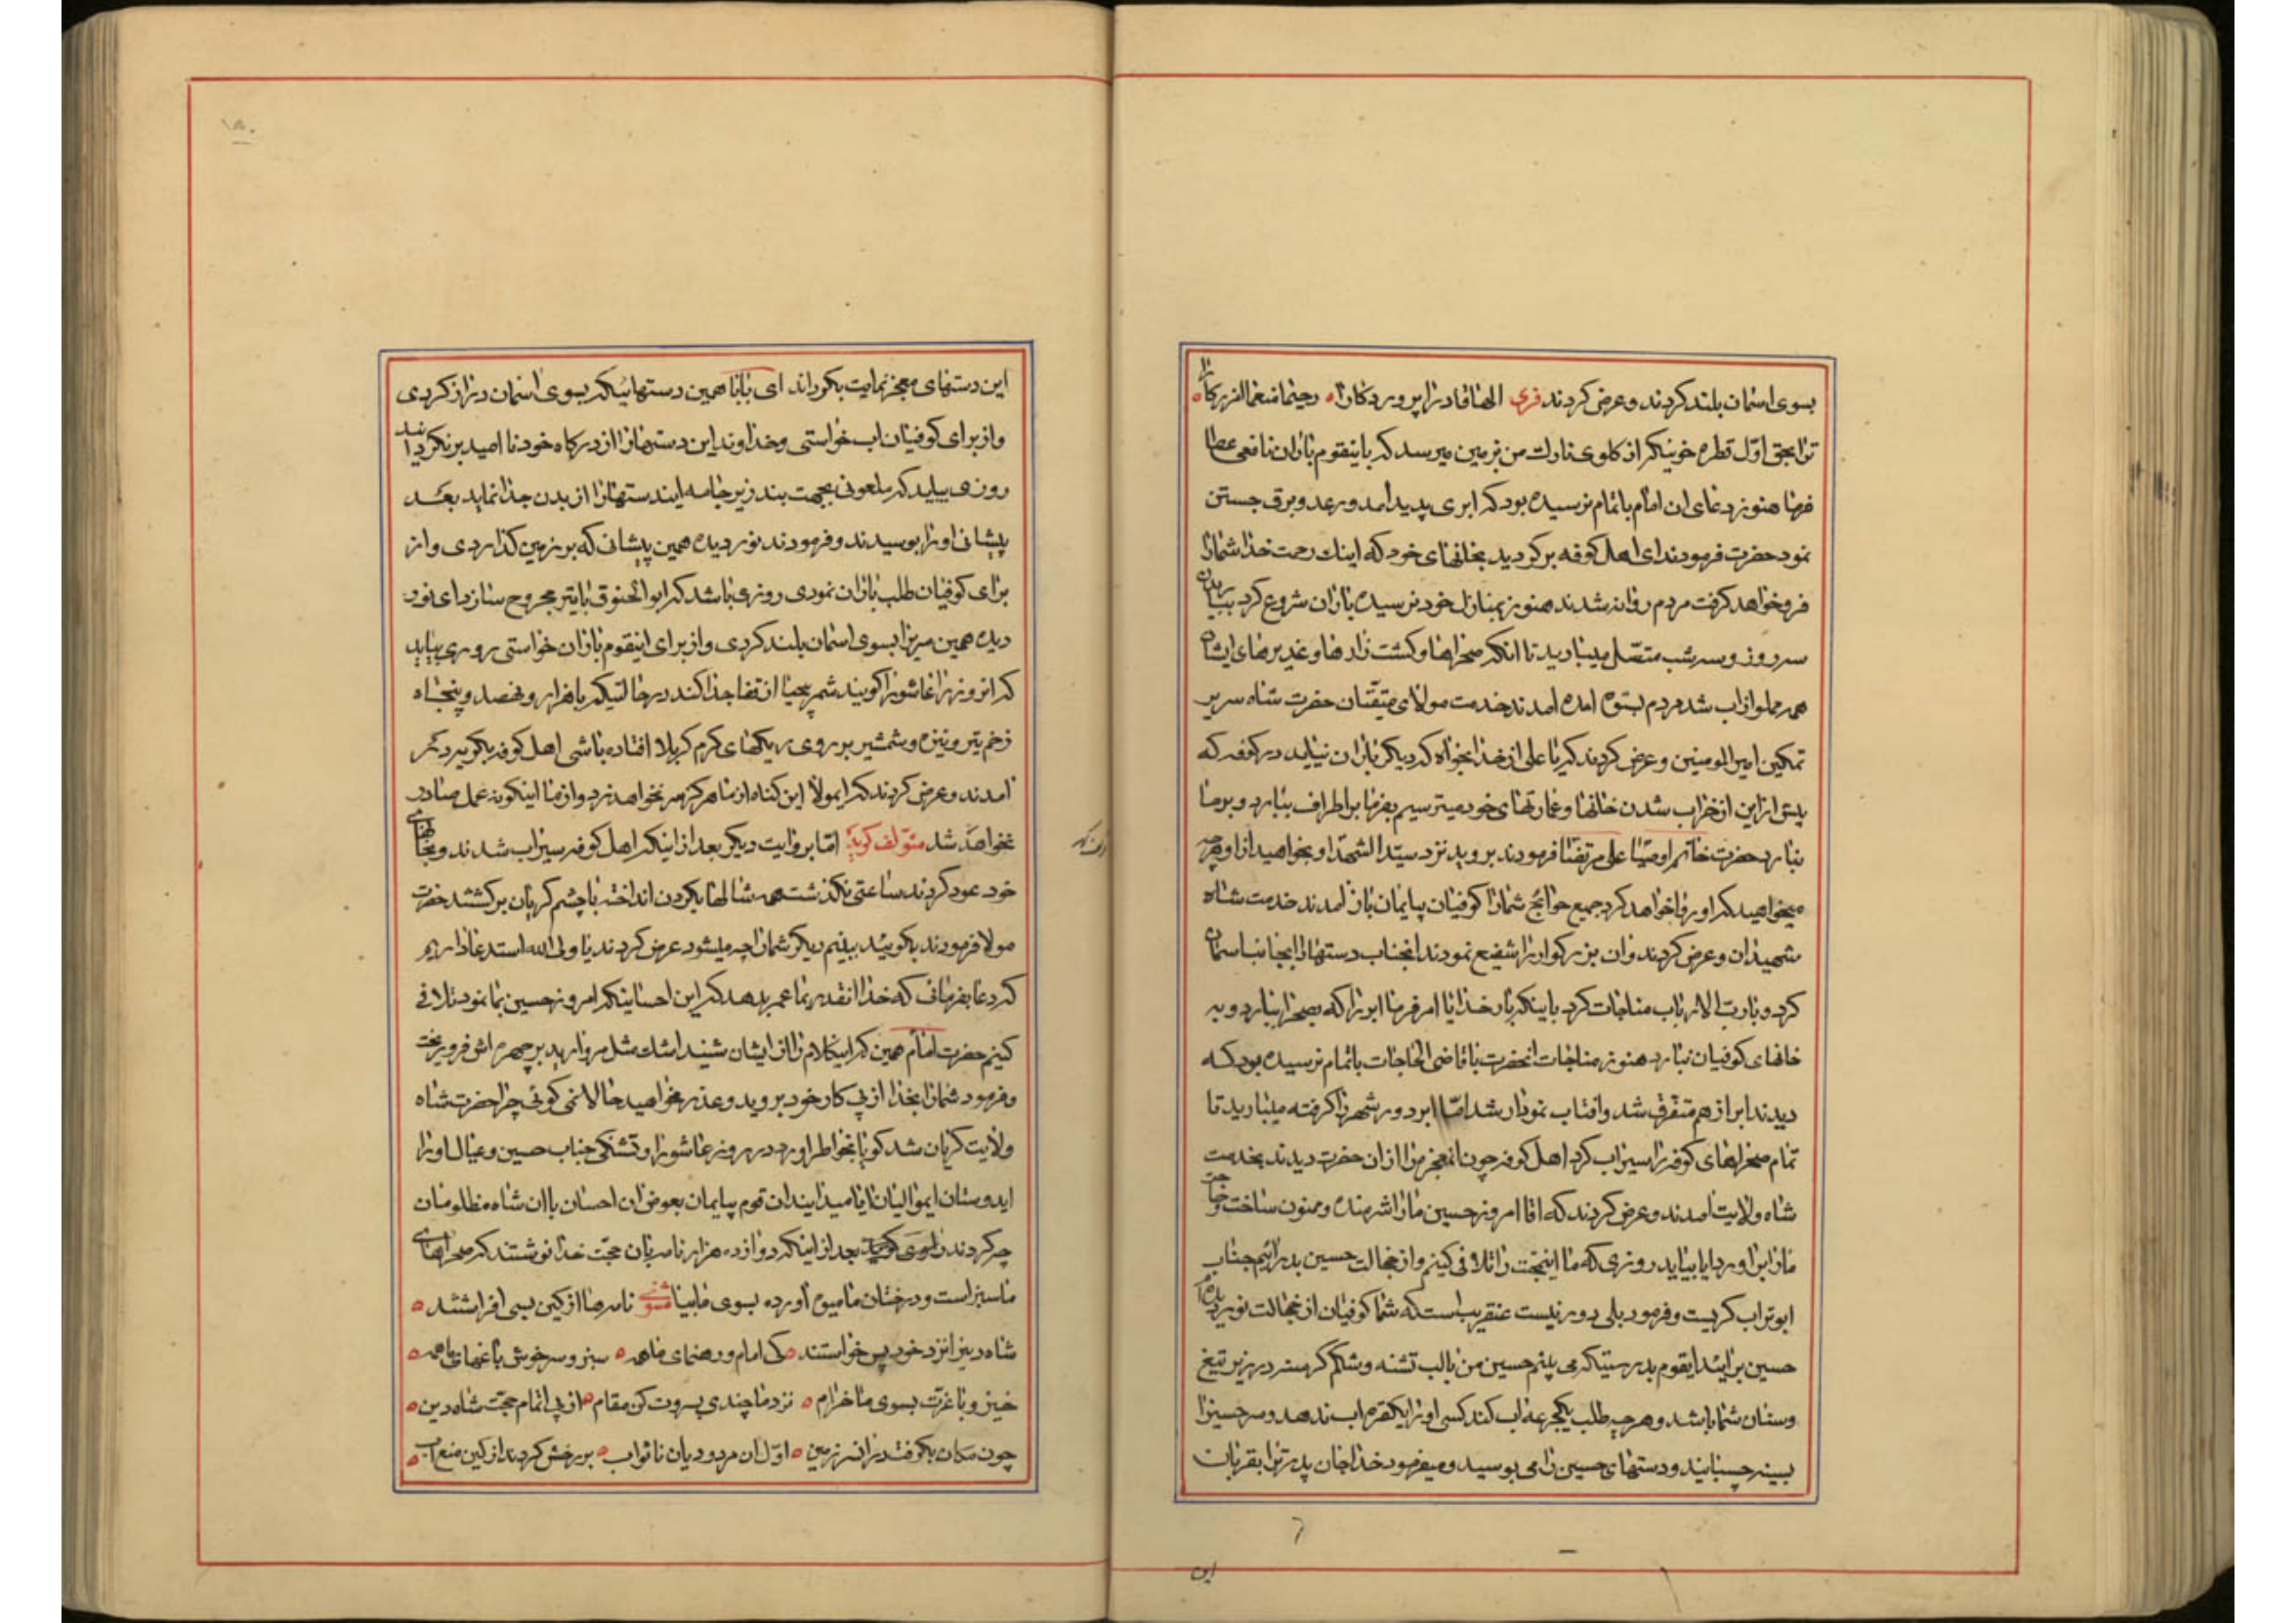 بسوی اسمان بلند کردند و عرض کردند فرد الها قادرا پروردکارا رحیما منعما
ترا بحق اول قطره خونیکه از کلوی نازك من بزمین میرسد که باینقوم باران نافعی عطا
فرما هنوز دعای ان امام باتمام نرسیده بود که ابری پدید امد و رعد و برق جستن
نمود حضرت فرمودند ای اهل کوفه برکردید بخانهای خود که اینك رحمت خدا شمارا
فرو خواهد کرفت مردم روانه شدند هنوز بمنازل خود نرسیده باران شروع کرد بباریدن
سه روز و سه شب متصل میبارید تا انکه صحراها و کشت زارها و غدیرهای ایشان
همه مملو از اب شد مردم بستوه امده امدند خدمت مولای متقیان حضرت شاه سریر
تمکین امیرالمومنین و عرض کردند که یا علی از خدا بخواه که دیکر باران نیاید در کوفه که
پیش ازاین از خراب شدن خانها و عمارتهای خود میترسیم بفرما بر اطراف ببارد و بر ما
نبارد حضرت خاتم اوصیا علی مرتضا فرمودند بروید نزد سیدالشهدا و بخواهید از او هرچه
میخواهید که او روا خواهد کرد جمیع حوائج شمارا کوفیان بیایمان باز امدند خدمت شاه
شهیدان و عرض کردند و ان بزرکوار را شفیع نمودند انجناب دستها را بجانب اسمان
کرد و با رب الارباب مناجات کرد باینکه بار خدایا امر فرما ابر را که بصحرا ببارد و به
خانهای کوفیان نبارد هنوز مناجات انحضرت با قاضی الحاجات باتمام نرسیده بود که
دیدند ابر از هم متفرق شد و افتاب نمودار شد اما ابر دور شهر را کرفته میبارید تا
تمام صحراهای کوفه را سیراب کرد اهل کوفه چون انمعجزه را از ان حضرت دیدند بخدمت
شاه ولایت امدند و عرض کردند که اقا امروز حسین مارا شرمنده و ممنون ساخت و حاجت
مارا براورد ایا بیاید روزی که ما این را تلافی کنیم و از خجالت حسین بدرائیم جناب
ابوتراب کریست و فرمود بلی دور نیست عنقریب است که شما کوفیان از خجالت نور دیده ام
حسین برائید ایقوم بدرستیکه می بینم حسین من با لب تشنه و شکم کرسنه در زیر تیغ
و سنان شما باشد و هر چه طلب یکجرعه اب کند کسی او را یکقطره اب ندهد و سر حسین را
بسینه چسبانید و دستهای حسین را می بوسید و میفرمود خدا جان پدر ترا بقربان
این
۱۵۰
این دستهای معجز نمایت بکرداند ای بابا همین دستهائیکه بسوی اسمان دراز کردی
و از برای کوفیان اب خواستی و خداوند این دستها را از درکاه خود نا امید برنکردانید
روزی بیاید که ملعونی بجهت بند زیر جامه ایندستها را از بدن جدا نماید بعد
پیشانی او را بوسیدند و فرمودند نور دیده همین پیشانی که بر زمین کذاردی و از
برای کوفیان طلب باران نمودی روزی باشد که ابوالحنوق با تیر مجروح سازد ای نور
دیده همین سر را بسوی اسمان بلند کردی و از برای اینقوم باران خواستی روزی بیاید
که انروز را عاشورا کویند شمر بیحیا از قفا جدا کند در حالتیکه با هزار و نهصد و پنجاه
زخم تیر و نیزه و شمشیر بر روی ریکهای کرم کربلا افتاده باشی اهل کوفه
امدند و عرض کردند که ایمولا این کناه از ما هرکز سر نخواهد زد و از ما اینکونه عمل صادر
نخواهد شد متولف کوید اما بروایت دیکر بعد از اینکه اهل کوفه سیراب شدند و بخانهای
خود عود کردند ساعتی نکذشت همه شالها بکردن انداخته با چشم کریان برکشتند حضرت
مولا فرمودند بکوئید ببینم دیکر شمارا چه میشود عرض کردند یا ولی الله استدعا داریم
که دعا بفرمائی که خدا انقدر بما عمر بدهد که این احسانیکه امروز حسین بما نمود تلافی
کنیم حضرت امام همین که اینکلام را از ایشان شنید اشك مثل مروارید بر چهره اش فرو ریخت
و فرمود شمارا بخدا از پی کار خود بروید و عذر مخواهید حالا نمی کوئی چرا حضرت شاه
ولایت کریان شد کویا بخواطر اورد در روز عاشورا و تشنکی جناب حسین و عیال او را
ایدوستان ایموالیان ایا میدانید ان قوم بیایمان بعوض ان احسان با ان شاه مظلومان
چه کردند بعد از اینکه دوازده هزار نامه بان حجت خدا نوشتند که صحراهای
ما سبز است و درختان ما میوه اورده بسوی ما بیا مثنوی نامه ها از کین بسی افراشتند
شاه دین را نزد خود پس خواستند کی امام و رهنمای ما همه سبز و سرخوش باغهای ما همه
خیز و با عزت بسوی ما خرام نزد ما چندی بسروت کن مقام از پی اتمام حجت شاه دین
چون مکان بکرفت در ان سرزمین اول ان مردودیان ناثواب بر رخش کردند از کین منع اب